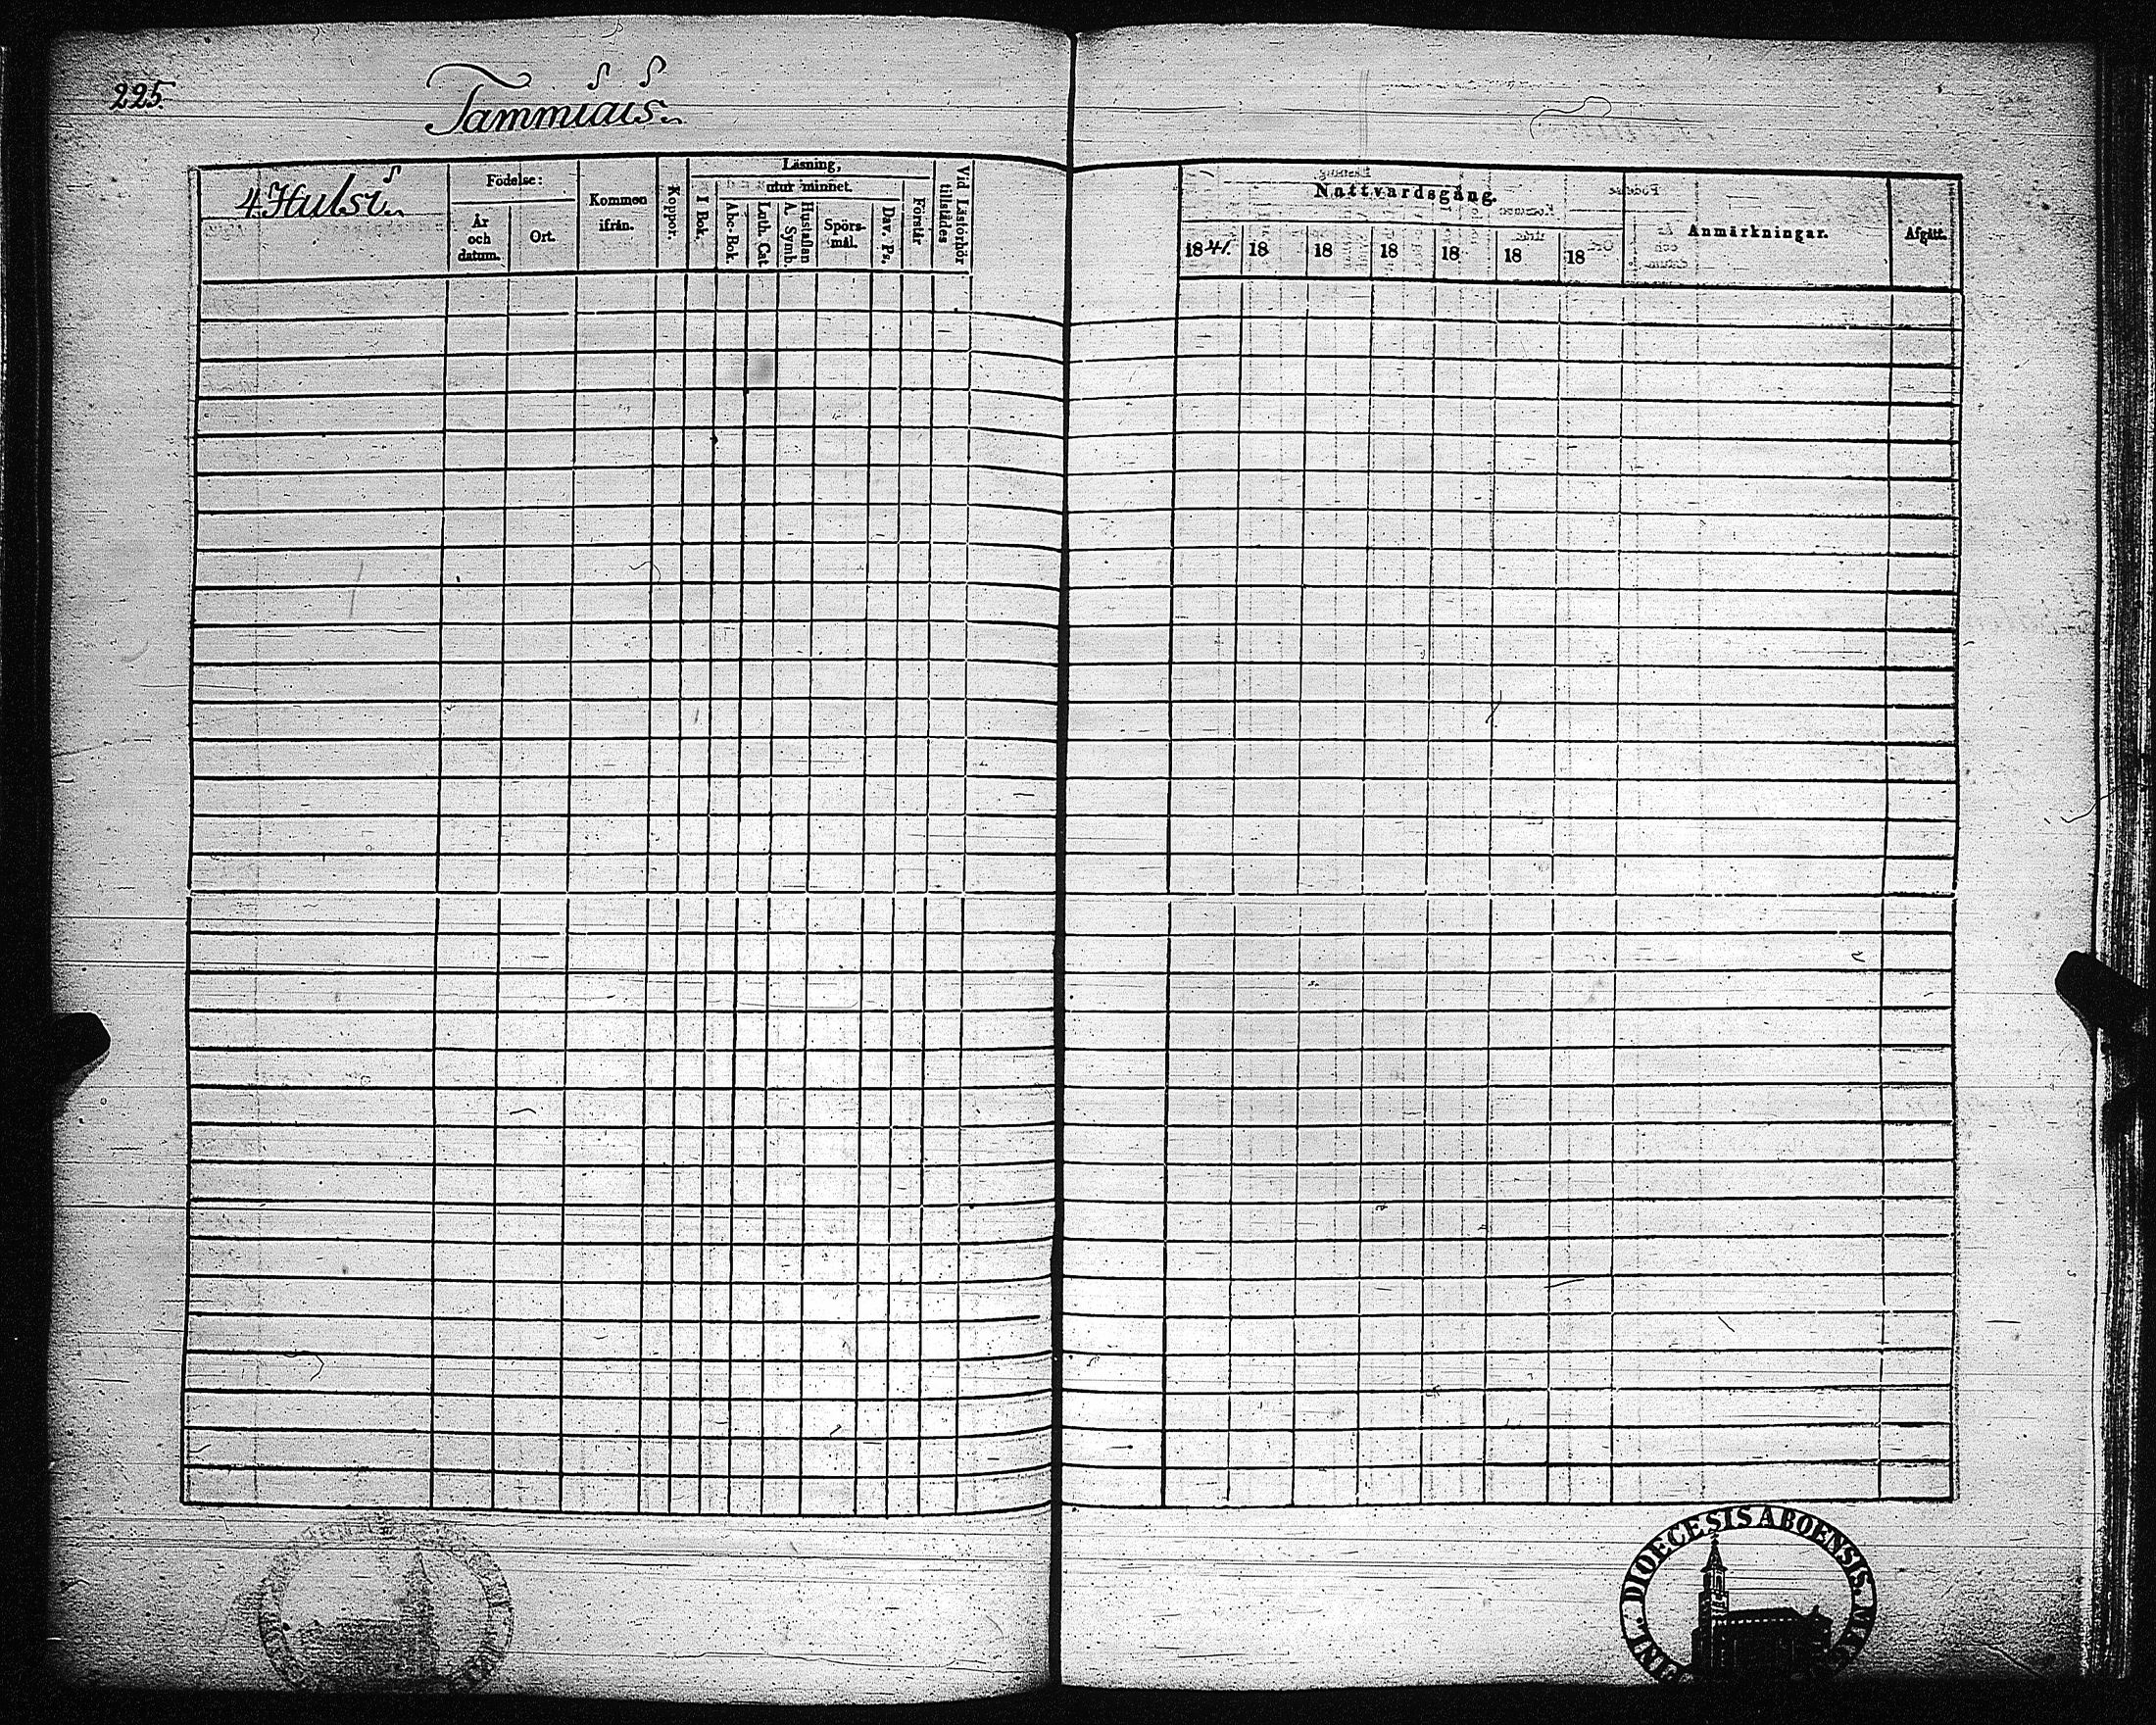 225.
Tammiais.
4 Hulsi.
Födelse:
År
och
datum.
Ort.
Kommen
ifrån.
Koppor.
Läsning,
utur minnet.
I Bok.
Abc-Bok.
Luth. Cat.
A. Symb.
Hustaflan
Spörs-
mål.
Dav. Ps.
Förstår
Vid Läsförhör
tillstädes
Nattvardsgång.
1841.
18
18
18
18
18
18
Anmärkningar.
Afgått.
DIOECESIS ABOENSIS.